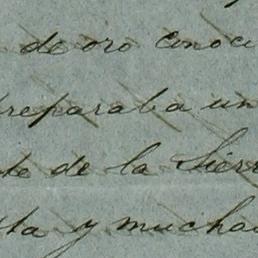 de oro conoci
reparaba un
te de la Sierr
ta y mucha